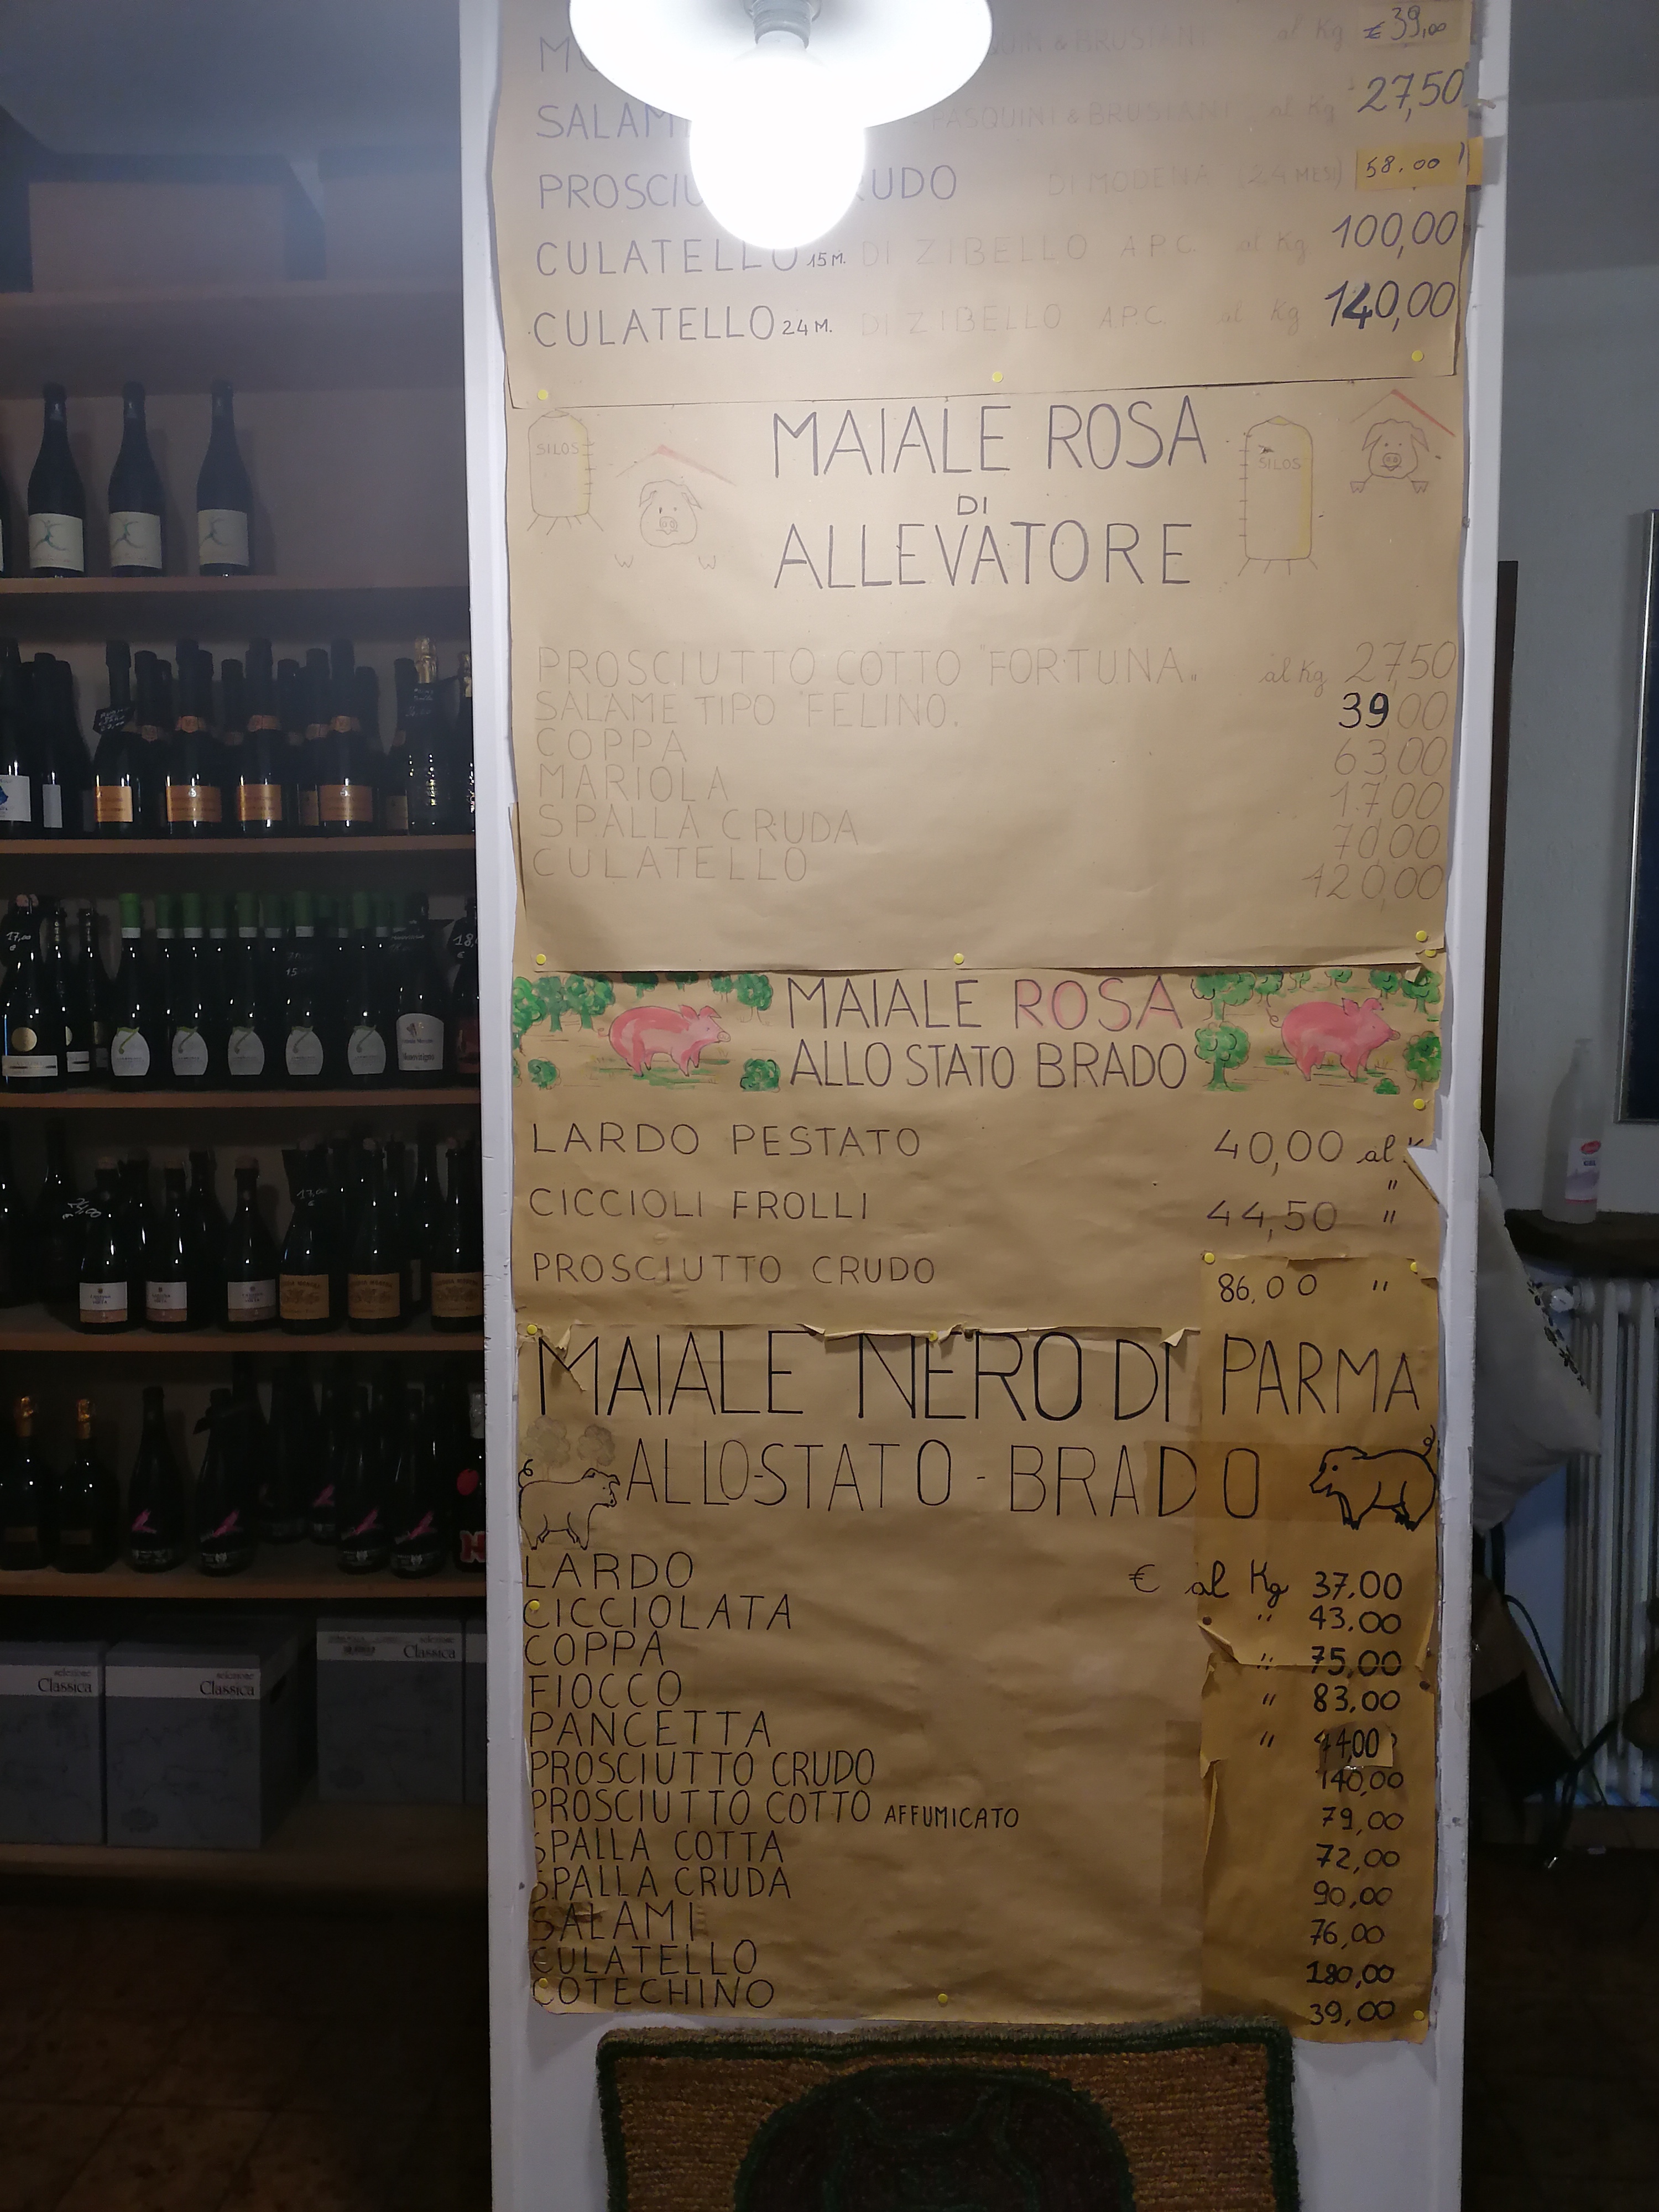 € 39,00
& BRUSIANI al Kg
SALAM PASQUINI & BRUSIANI al Kg 27,50
RUDO DI MODENA (24 MESI) 58.00
CULATELLO 15 M. DI ZIBELLO A.P.C. al Kg 100,00
CULATELLO 24 M. DI ZIBELLO A.P.C. al Kg 140,00
MAIALE ROSA
DI
ALLEVATORE
SILOS
SILOS
PROSCIUTTO COTTO "FORTUNA" al Kg 27,50
SALAME TIPO "FELINO" 39,00
COPPA 63,00
MARIOLA 17,00
SPALLA CRUDA 70,00
CULATELLO 120,00
MAIALE ROSA
ALLO STATO BRADO
LARDO PESTATO 40,00 al K
CICCIOLI FROLLI 44,50 "
PROSCIUTTO CRUDO 86,00 "
MAIALE NERO DI PARMA
ALLO-STATO-BRADO
LARDO € al Kg 37,00
CICCIOLATA " 43,00
COPPA " 75,00
FIOCCO " 83,00
PANCETTA " 44,00
PROSCIUTTO CRUDO 140,00
PROSCIUTTO COTTO AFFUMICATO 79,00
SPALLA COTTA 72,00
SPALLA CRUDA 90,00
SALAMI 76,00
CULATELLO 180,00
COTECHINO 39,00
selezione
Classica
selezione
Classica
selezione
Classica